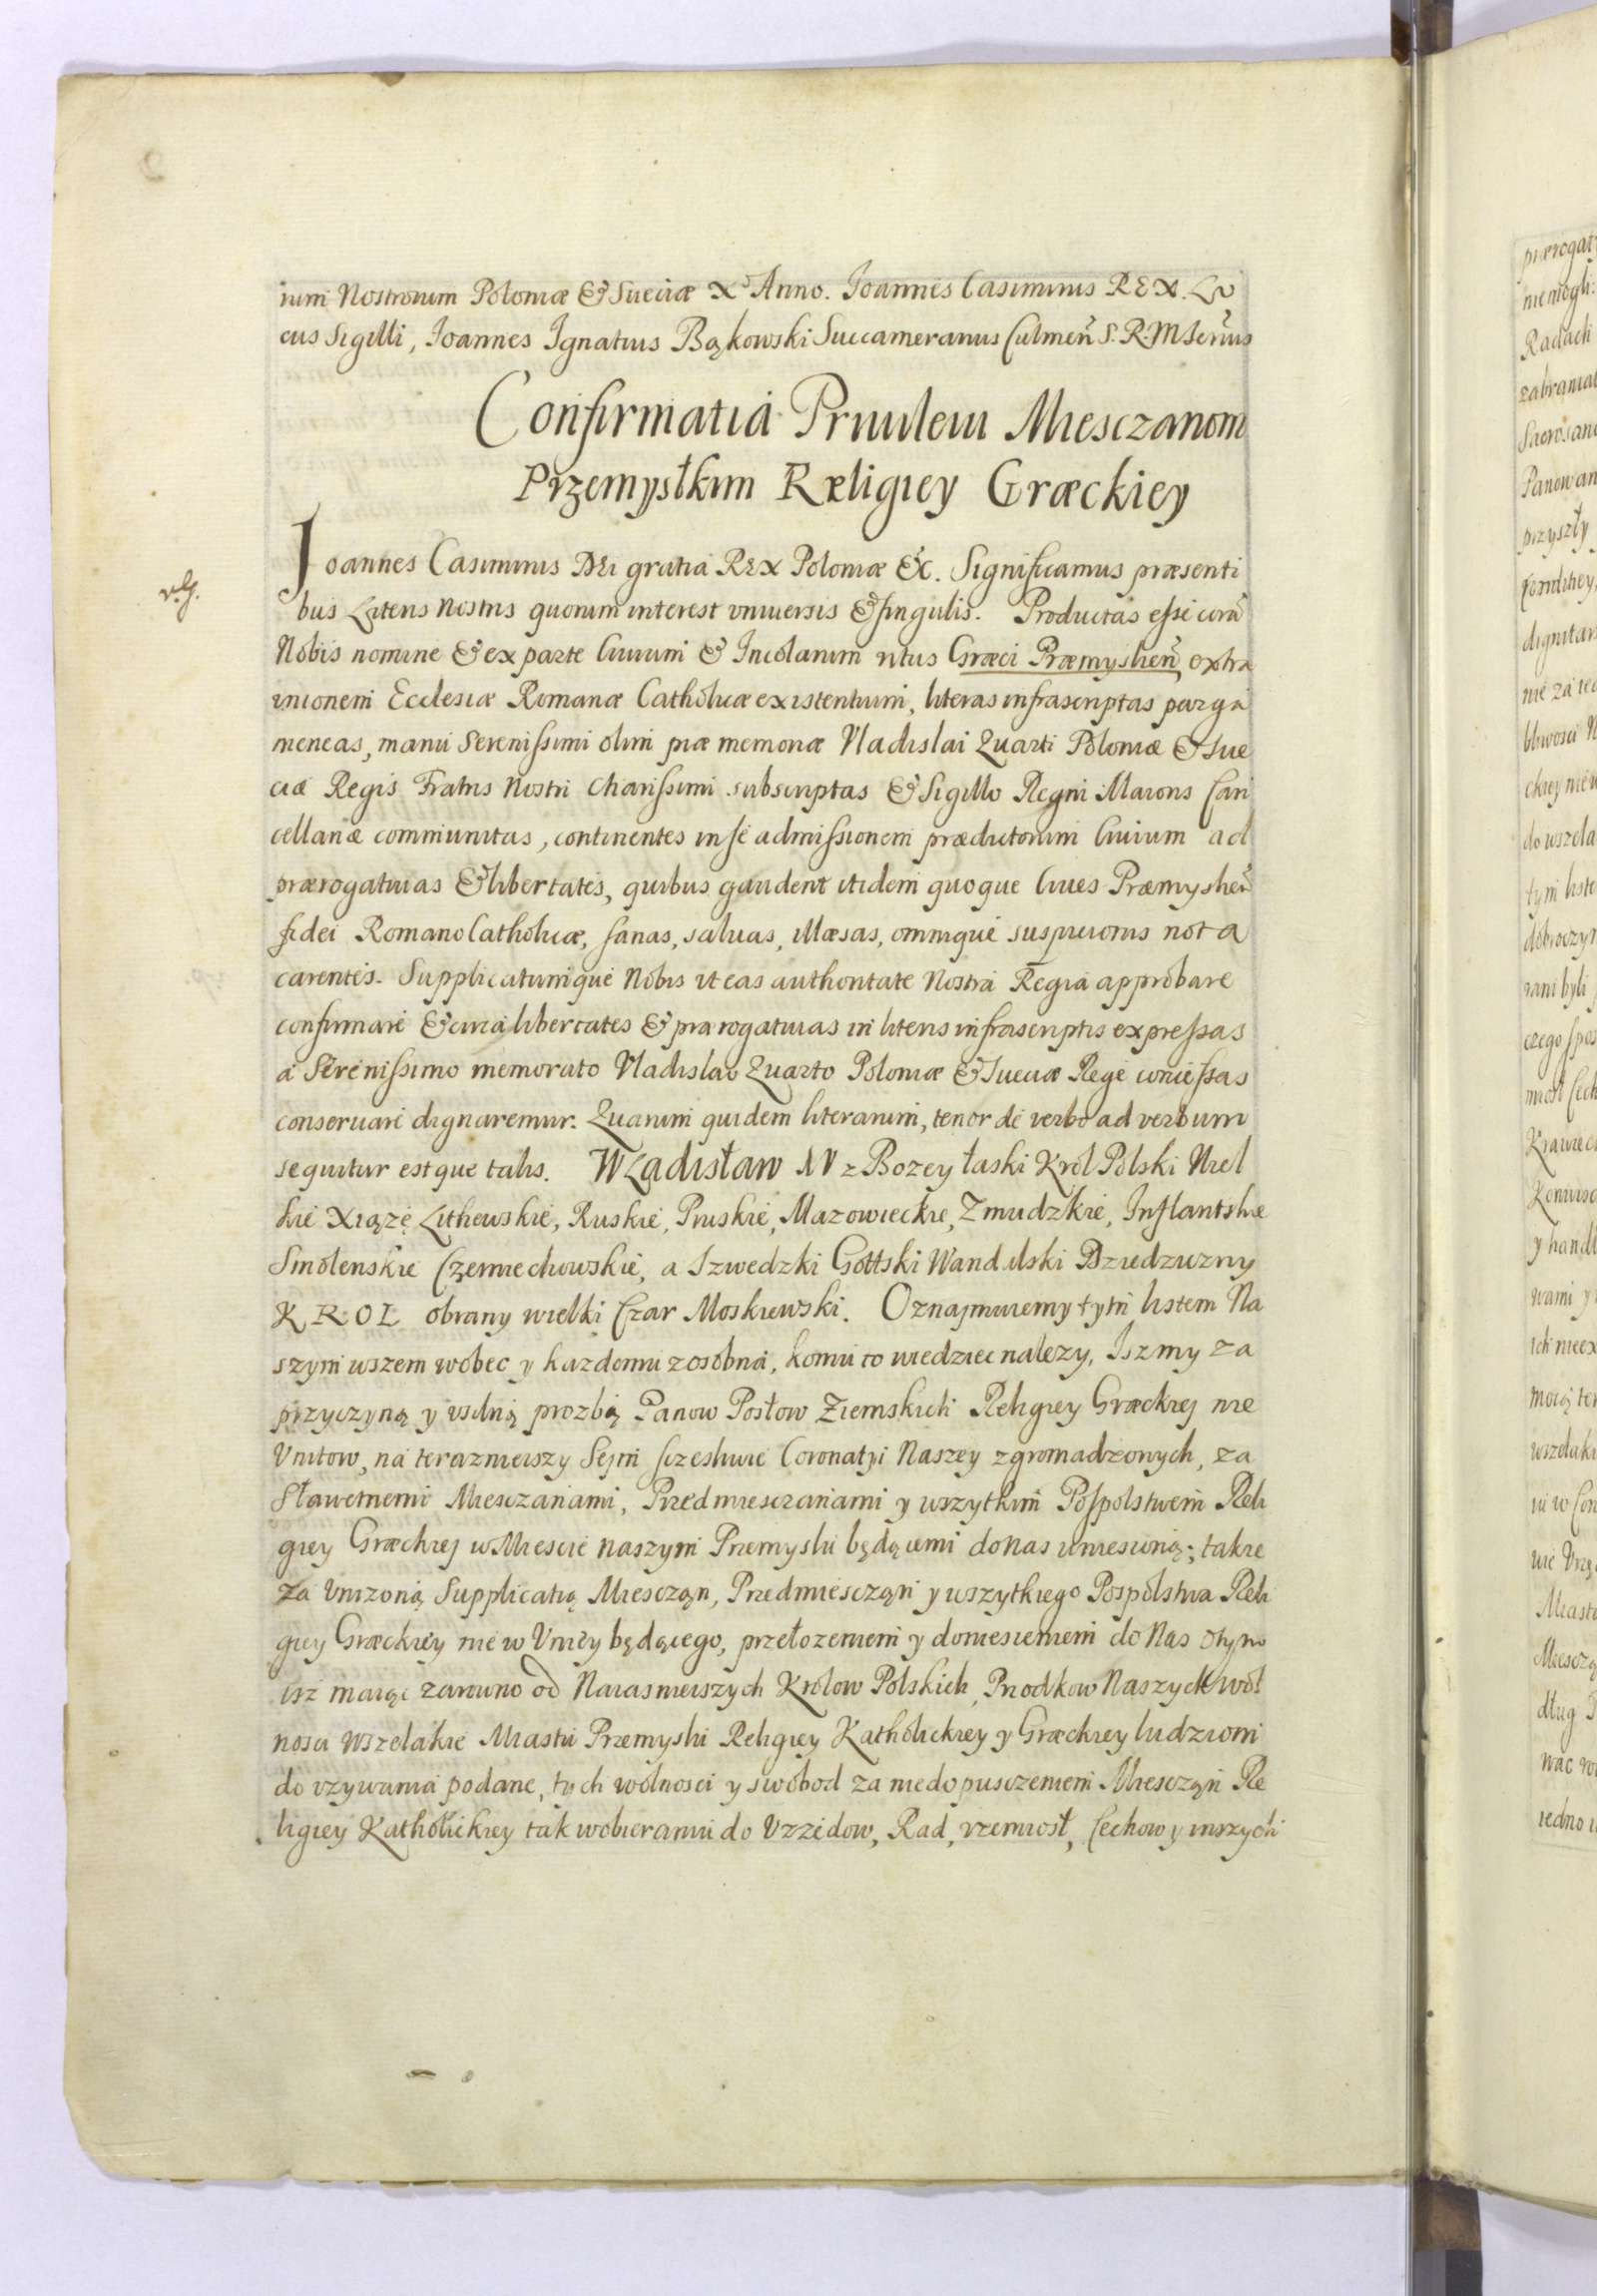 rum Nostrorum Poloniæ & Sueciæ X Anno. Joannes Casimirus REX. Lo
cus Sigilli, Joannes Ignatius Bąkowski Succamerarius Culmen̄ S. R. M Secr̄ius
Confirmatia Priuileiu Miesczanom
Przemyslkim Religiey Græckiey
Joannes Casimirus DEi gratia REX Poloniæ &c. Significamus præsenti
bus Literis Nostris quorum interest vniuersis & singulis. Productas esse corā
Nobis nomine & ex parte Ciuium & Incolarum ritus Græci Præmyslien̄ extra
vnionem Ecclesiæ Romanæ Catholicæ existentium, literas infrascriptas parga
meneas, manu Serenissimi olim piæ memoriæ Vladislai Quarti Poloniæ & Sue
ciæ Regis Fratris Nostri Charissimi subscriptas & Sigillo Regni Maioris Can
cellariæ communitas, continentes in se admissionem prædictorum Ciuium ad
prærogatiuas & libertates, quibus gaudent itidem quoque Ciues Præmyslien̄
fidei Romano Catholicæ, sanas, saluas, illæsas, omnique suspicionis nota
carentes. Supplicatumque Nobis vt eas authoritate Nostra Regia approbare
confirmare & circa libertates & prærogatiuas in literis infrascriptis expressas
a Serenissimo memorato Vladislao Quarto Poloniæ & Sueciæ Rege concessas
conseruare dignaremur. Quarum quidem literarum, tenor de verbo ad verbum
sequitur estque talis. Władisław IV z Bozey łaski Krol Polski Wiel
kie Xiążę Lithewskie, Ruskie, Pruskie, Mazowieckie, Zmudzkie, Inflantskie
Smolenskie Czerniechowskie, a Szwedzki Gottski Wandalski Dziedziczny
KROL obrany wielki Czar Moskiewski. Oznajmuiemy tym listem Na
szym wszem wobec y kazdemu zosobna, komu to wiedziec nalezy, Iszmy za
przyczyną y vsilną prozbą Panow Posłow Ziemskich Religiey Græckiej nie
Vnitow, na terazniejszy Sejm szczesliwie Coronatyi Naszey zgromadzonych, za
Sławetnemi Miesczanami, Przedmiesczanami y wszytkim Pospolstwem Reli
giey Græckiej w Miescie naszym Przemyslu będącemi do nas wniesioną; takze
za Vnizoną Supplicatią Miesczan, Przedmiesczan y wszytkiego Pospolstwa Reli
giey Græckiey nie w Vniey będącego, przełozeniem y doniesieniem do Nas otym
isz maiąc zarowno od Naiasnieiszych Krolow Polskich, Przodkow Naszych wol
nosci wszelakie Miastu Przemyslu Religiey Katholickiey y Græckiey ludziom
do vzywania podane, tych wolnosci y swobod za niedopusczeniem Miesczan Re
ligiey Katholickiey tak wobieraniu do Vrzędow, Rad, rzemiosł, Cechow y inszych